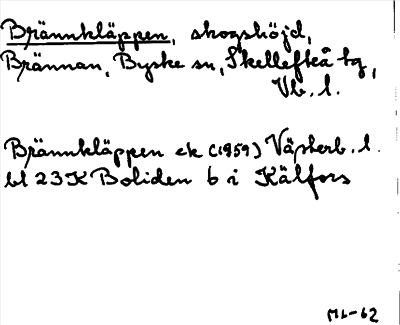 Brännkläppen, skogshöjd,
Brännan, Byske sn, Skellefteå tg,
Vb. l.
Brännkläppen ek (1959) Västerb. l.
bl 23K Boliden b i Kälfors
Mb-62